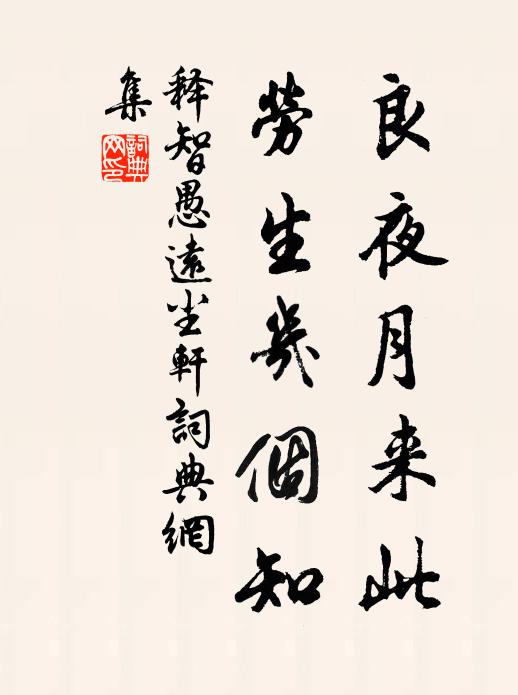 良夜月来此
勞生幾個知
释智愚遠尘軒詞典網
集
詞典網印